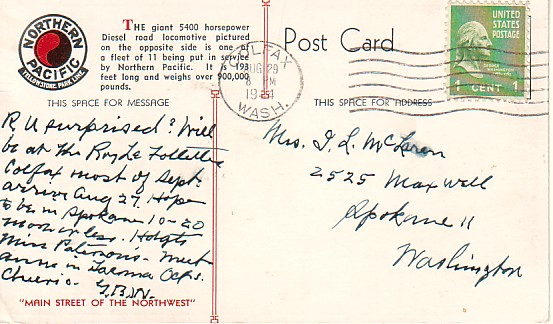 NORTHERN
PACIFIC
YELLOWSTONE PARK LINE
THE giant 5400 horsepower
Diesel road locomotive pictured
on the opposite side is one of
a fleet of 11 being put in service
by Northern Pacific. It is 193
feet long and weighs over 900,000
pounds.
THIS SPACE FOR MESSAGE
R U surprised? Will
be at the Roy La Follette
Colfax most of Sept.
arrive Aug 27. Hope
to be in Spokane 10-20
more or less.
Miss Paterson's - meet
in Tacoma Oct 5.
Cheerio - G.B.W.
"MAIN STREET OF THE NORTHWEST"
COLFAX
AUG 29
8 PM
WASH.
Post Card
UNITED
STATES
POSTAGE
1 CENT 1
THIS SPACE FOR ADDRESS
Mrs. I. L. McLaren
2525 Maxwell
Spokane 11
Washington